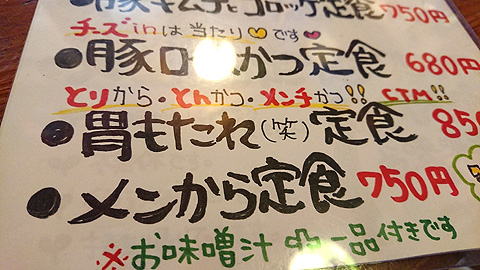 豚キムチとコロッケ定食 750円
チーズinは当たり♡です♥
●豚ロースかつ定食 680円
とりから・とんかつ・メンチかつ!! CTM!!
●胃もたれ(笑)定食 85
●メンから定食 750円
※お味噌汁 一品付きです